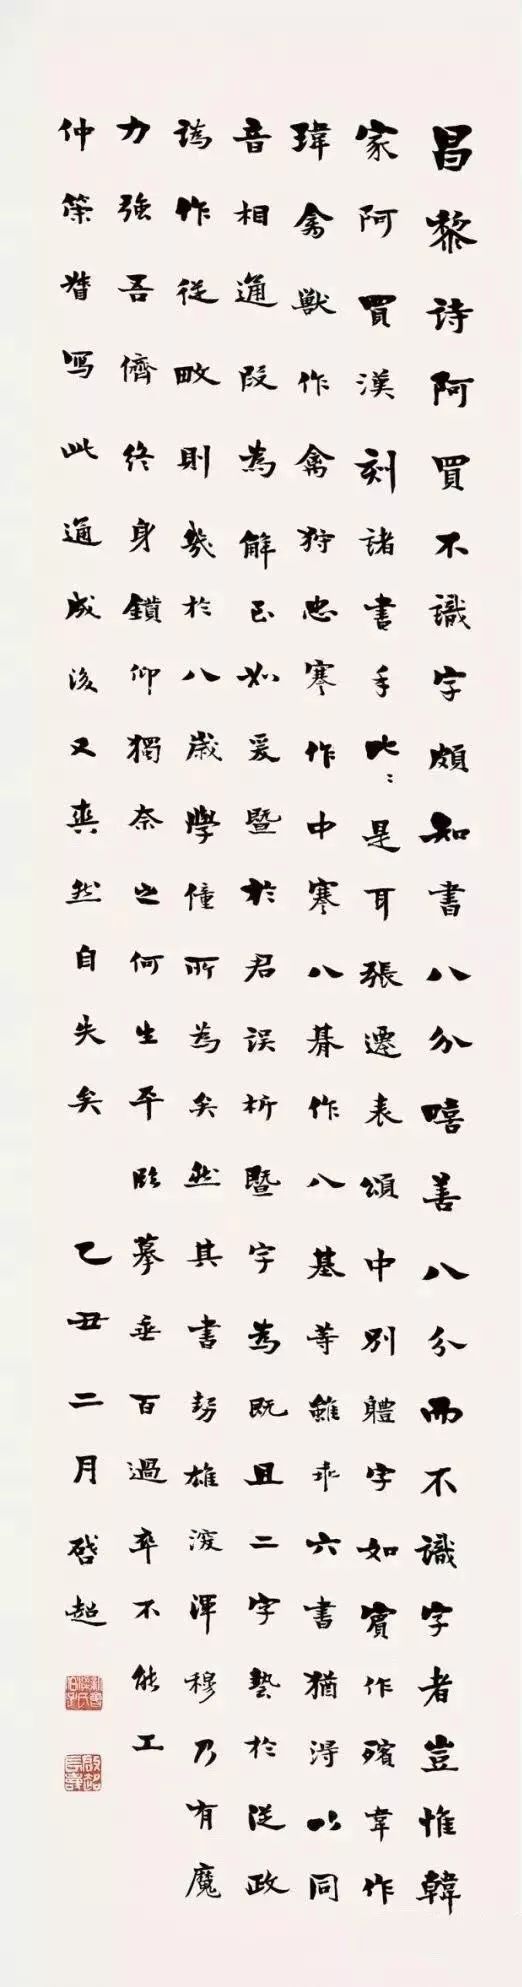 昌黎詩阿買不識字頗知書八分嘻善八分而不識字者豈惟韓
家阿買漢刻諸書手比比是耳張遷表頌中別體字如賓作殯韋作
瑋禽獸作禽狩忠謇作中謇八朞作八基等雖乖六書猶得以同
音相通叚為解已如爰暨於君誤析暨字為既且二字藝於從政
譌作從畋則幾於八歲學僮所為矣然其書勢雄浚渾穆乃有魔
力強吾儕終身鑽仰獨奈之何生平臨摹垂百過卒不能工
仲策督寫此通成後又爽然自失矣 乙丑二月 啓超